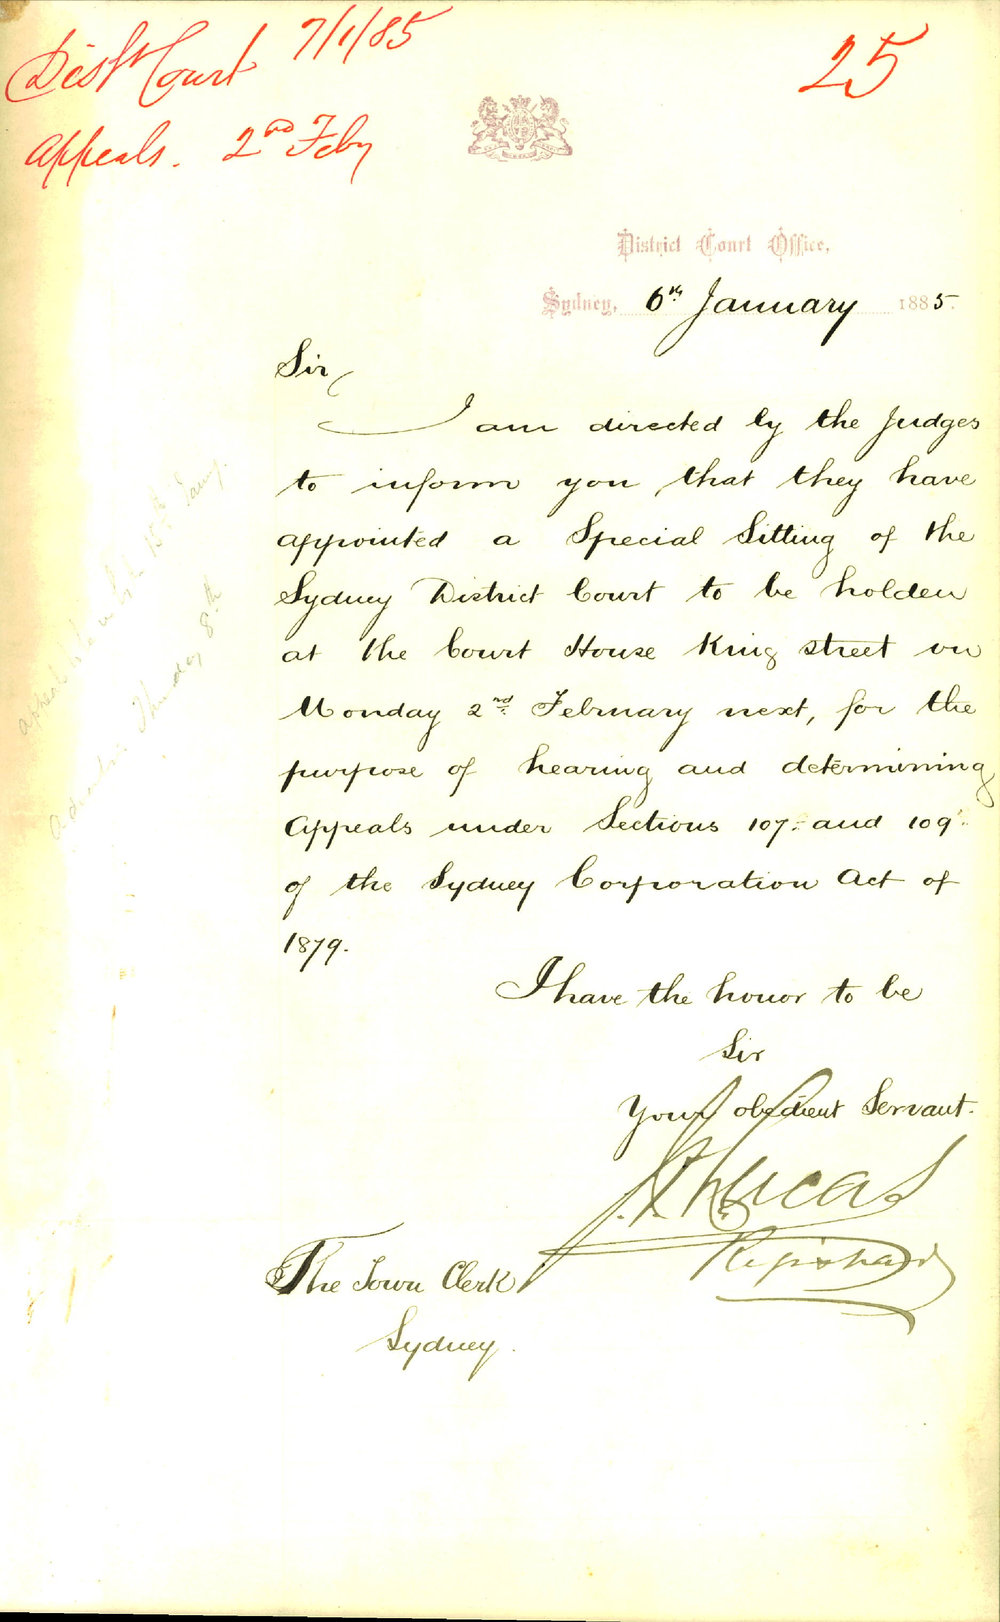 Dist Court 7/1/85
Appeals. 2nd Feby
25
District Court Office,
Sydney, 6th January 1885.
Sir
I am directed by the Judges
to inform you that they have
appointed a Special Sitting of the
Sydney District Court to be holden
at the Court House King street on
Monday 2nd February next, for the
purpose of hearing and determining
Appeals under Sections 107 and 109
of the Sydney Corporation Act of
1879.
I have the honor to be
Sir
Your obedient Servant.
Lucas
Registrar
The Town Clerk
Sydney.
Thursday 8th